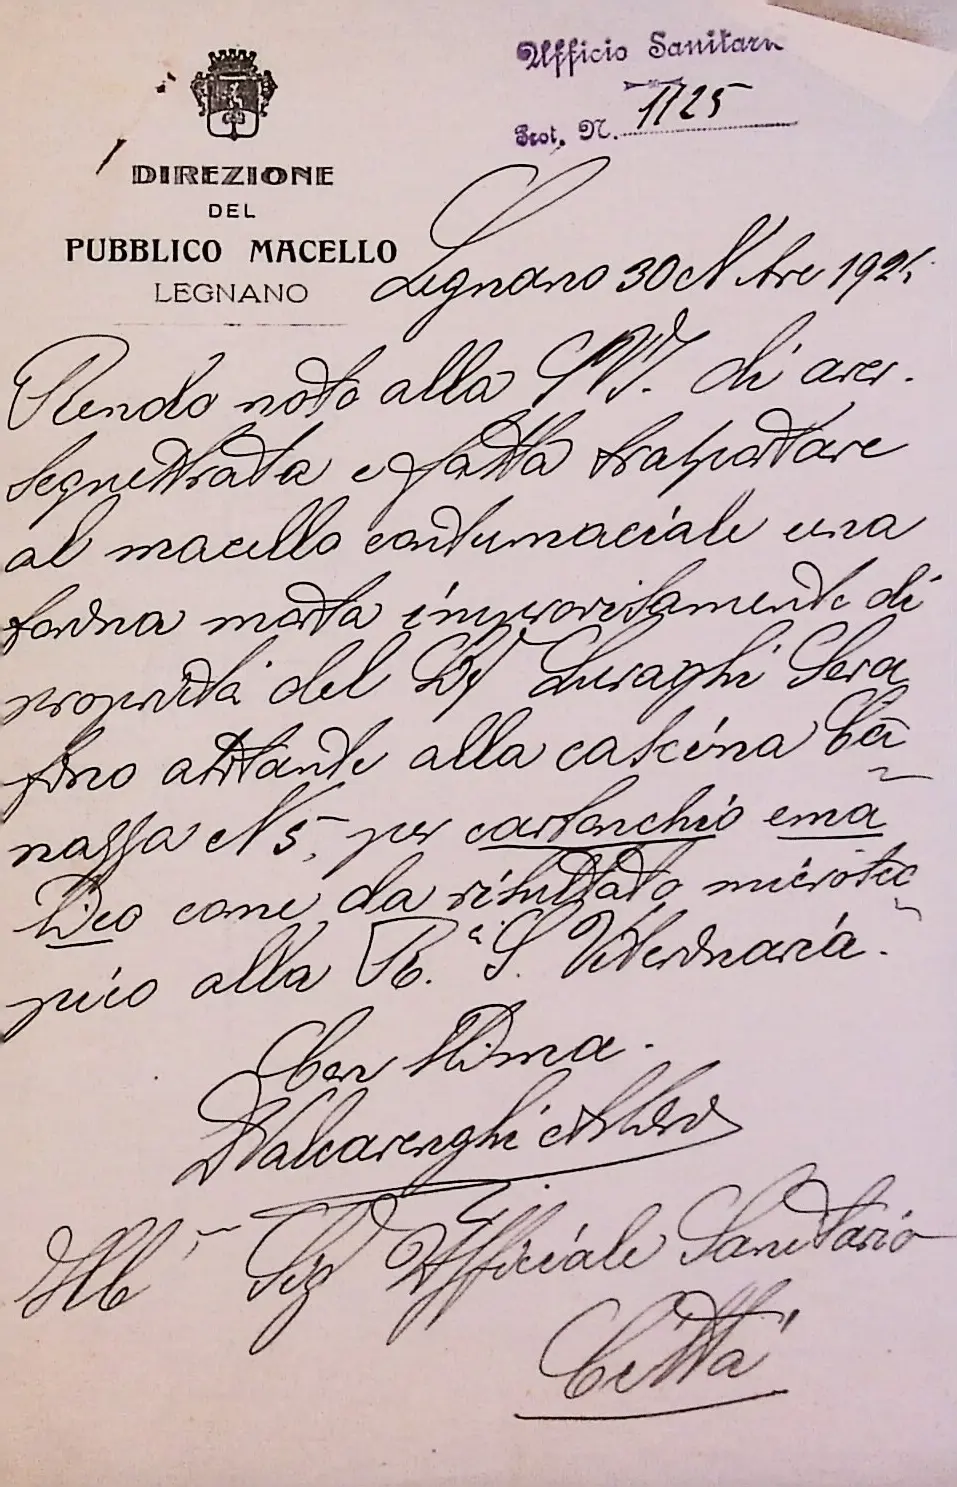 Ufficio Sanitari
Prot. N. 1125
DIREZIONE
DEL
PUBBLICO MACELLO
LEGNANO
Legnano 30 Nbre 192
Rendo noto alla S.V.I. di aver
sequestrata e fatta trasportare
al macello contumaciale una
bovina morta improvvisamente di
proprietà del Sig Luraghi Sera
fino abitante alla cascina Ca
nazza N 5, per carbonchio ema
tico come da risultato microsco
pico alla R.a S. Veterinaria.
Con Stima.
Valcarenghi
Ill Sig Ufficiale Sanitario
Città